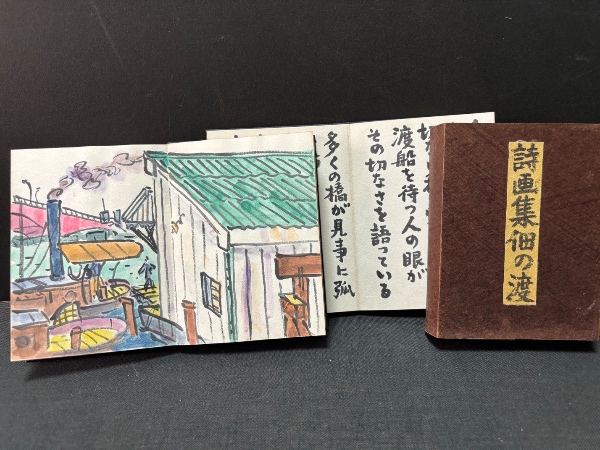 渡船を待つ人の眼が
その切なさを語っている
多くの橋が見事に弧
詩画集佃の渡